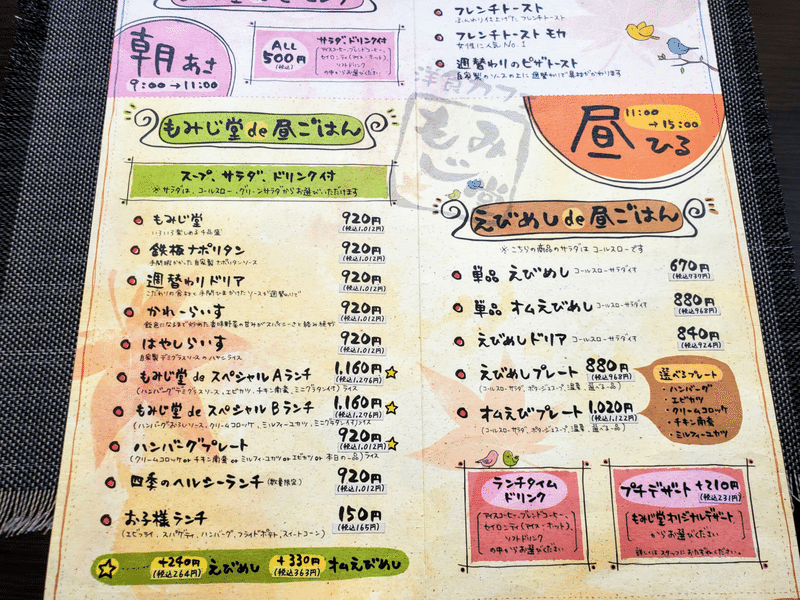 朝 あさ
9:00→11:00
ALL
500円
(税込)
サラダ、ドリンク付
アイスコーヒー、ブレンドコーヒー、
セイロンティ(アイス・ホット)、
ソフトドリンク
の中からお選びください
フレンチトースト
ふんわり仕上げた、フレンチトースト
フレンチトースト モカ
女性に人気 No.1
週替わりのピザトースト
自家製のソースの上に週替わりで具材がかわります
洋食カフェ
もみじ堂
もみじ堂 de 昼ごはん
スープ、サラダ、ドリンク付
※サラダは、コールスロー、グリーンサラダからお選びいただけます
もみじ堂 920円
いろいろ楽しめる4品盛 (税込1,012円)
鉄板ナポリタン 920円
手間暇かかった自家製ナポリタンソース (税込1,012円)
週替わりドリア 920円
こだわりの食材と手間ひまかけたソースが週替わりで (税込1,012円)
かれーらいす 920円
飴色になるまで炒めた香味野菜の甘みがスパイシーさと絡み続け (税込1,012円)
はやしらいす 920円
自家製デミグラスソースのハヤシライス (税込1,012円)
もみじ堂 de スペシャル Aランチ 1,160円
(税込1,276円)
(ハンバーグデミグラスソース、エビカツ、チキン南蛮、ミニグラタン付)ライス
もみじ堂 de スペシャル Bランチ 1,160円
(税込1,276円)
(ハンバーグおろしソース、クリームコロッケ、ミルフィーユカツ、ミニグラタン付)ライス
ハンバーグプレート 920円
(税込1,012円)
(クリームコロッケ or チキン南蛮 or ミルフィーユカツ or エビカツ or 本日の一品)ライス
四季のヘルシーランチ (数量限定) 920円
(税込1,012円)
お子様ランチ 150円
(税込165円)
(エビフライ、スパゲティ、ハンバーグ、フライドポテト、スイートコーン)
+240円
(税込264円)
えびめし
+330円
(税込363円)
オムえびめし
昼 ひる
11:00
→15:00
えびめし de 昼ごはん
※こちらの商品のサラダはコールスローです
単品 えびめし コールスローサラダ付 670円
(税込737円)
単品 オムえびめし コールスローサラダ付 880円
(税込968円)
えびめしドリア コールスローサラダ付 840円
(税込924円)
えびめしプレート 880円
(税込968円)
(コールスローサラダ、ポタージュスープ、温菜、選べる一品)
オムえびプレート 1,020円
(税込1,122円)
(コールスローサラダ、ポタージュスープ、温菜、選べる一品)
選べるプレート
・ハンバーグ
・エビカツ
・クリームコロッケ
・チキン南蛮
・ミルフィーユカツ
ランチタイム
ドリンク
アイスコーヒー、ブレンドコーヒー、
セイロンティ(アイス・ホット)、
ソフトドリンク
の中からお選びください
プチデザート +210円
(税込231円)
もみじ堂オリジナルデザート
からお選びください
詳しくはスタッフにおたずねください。